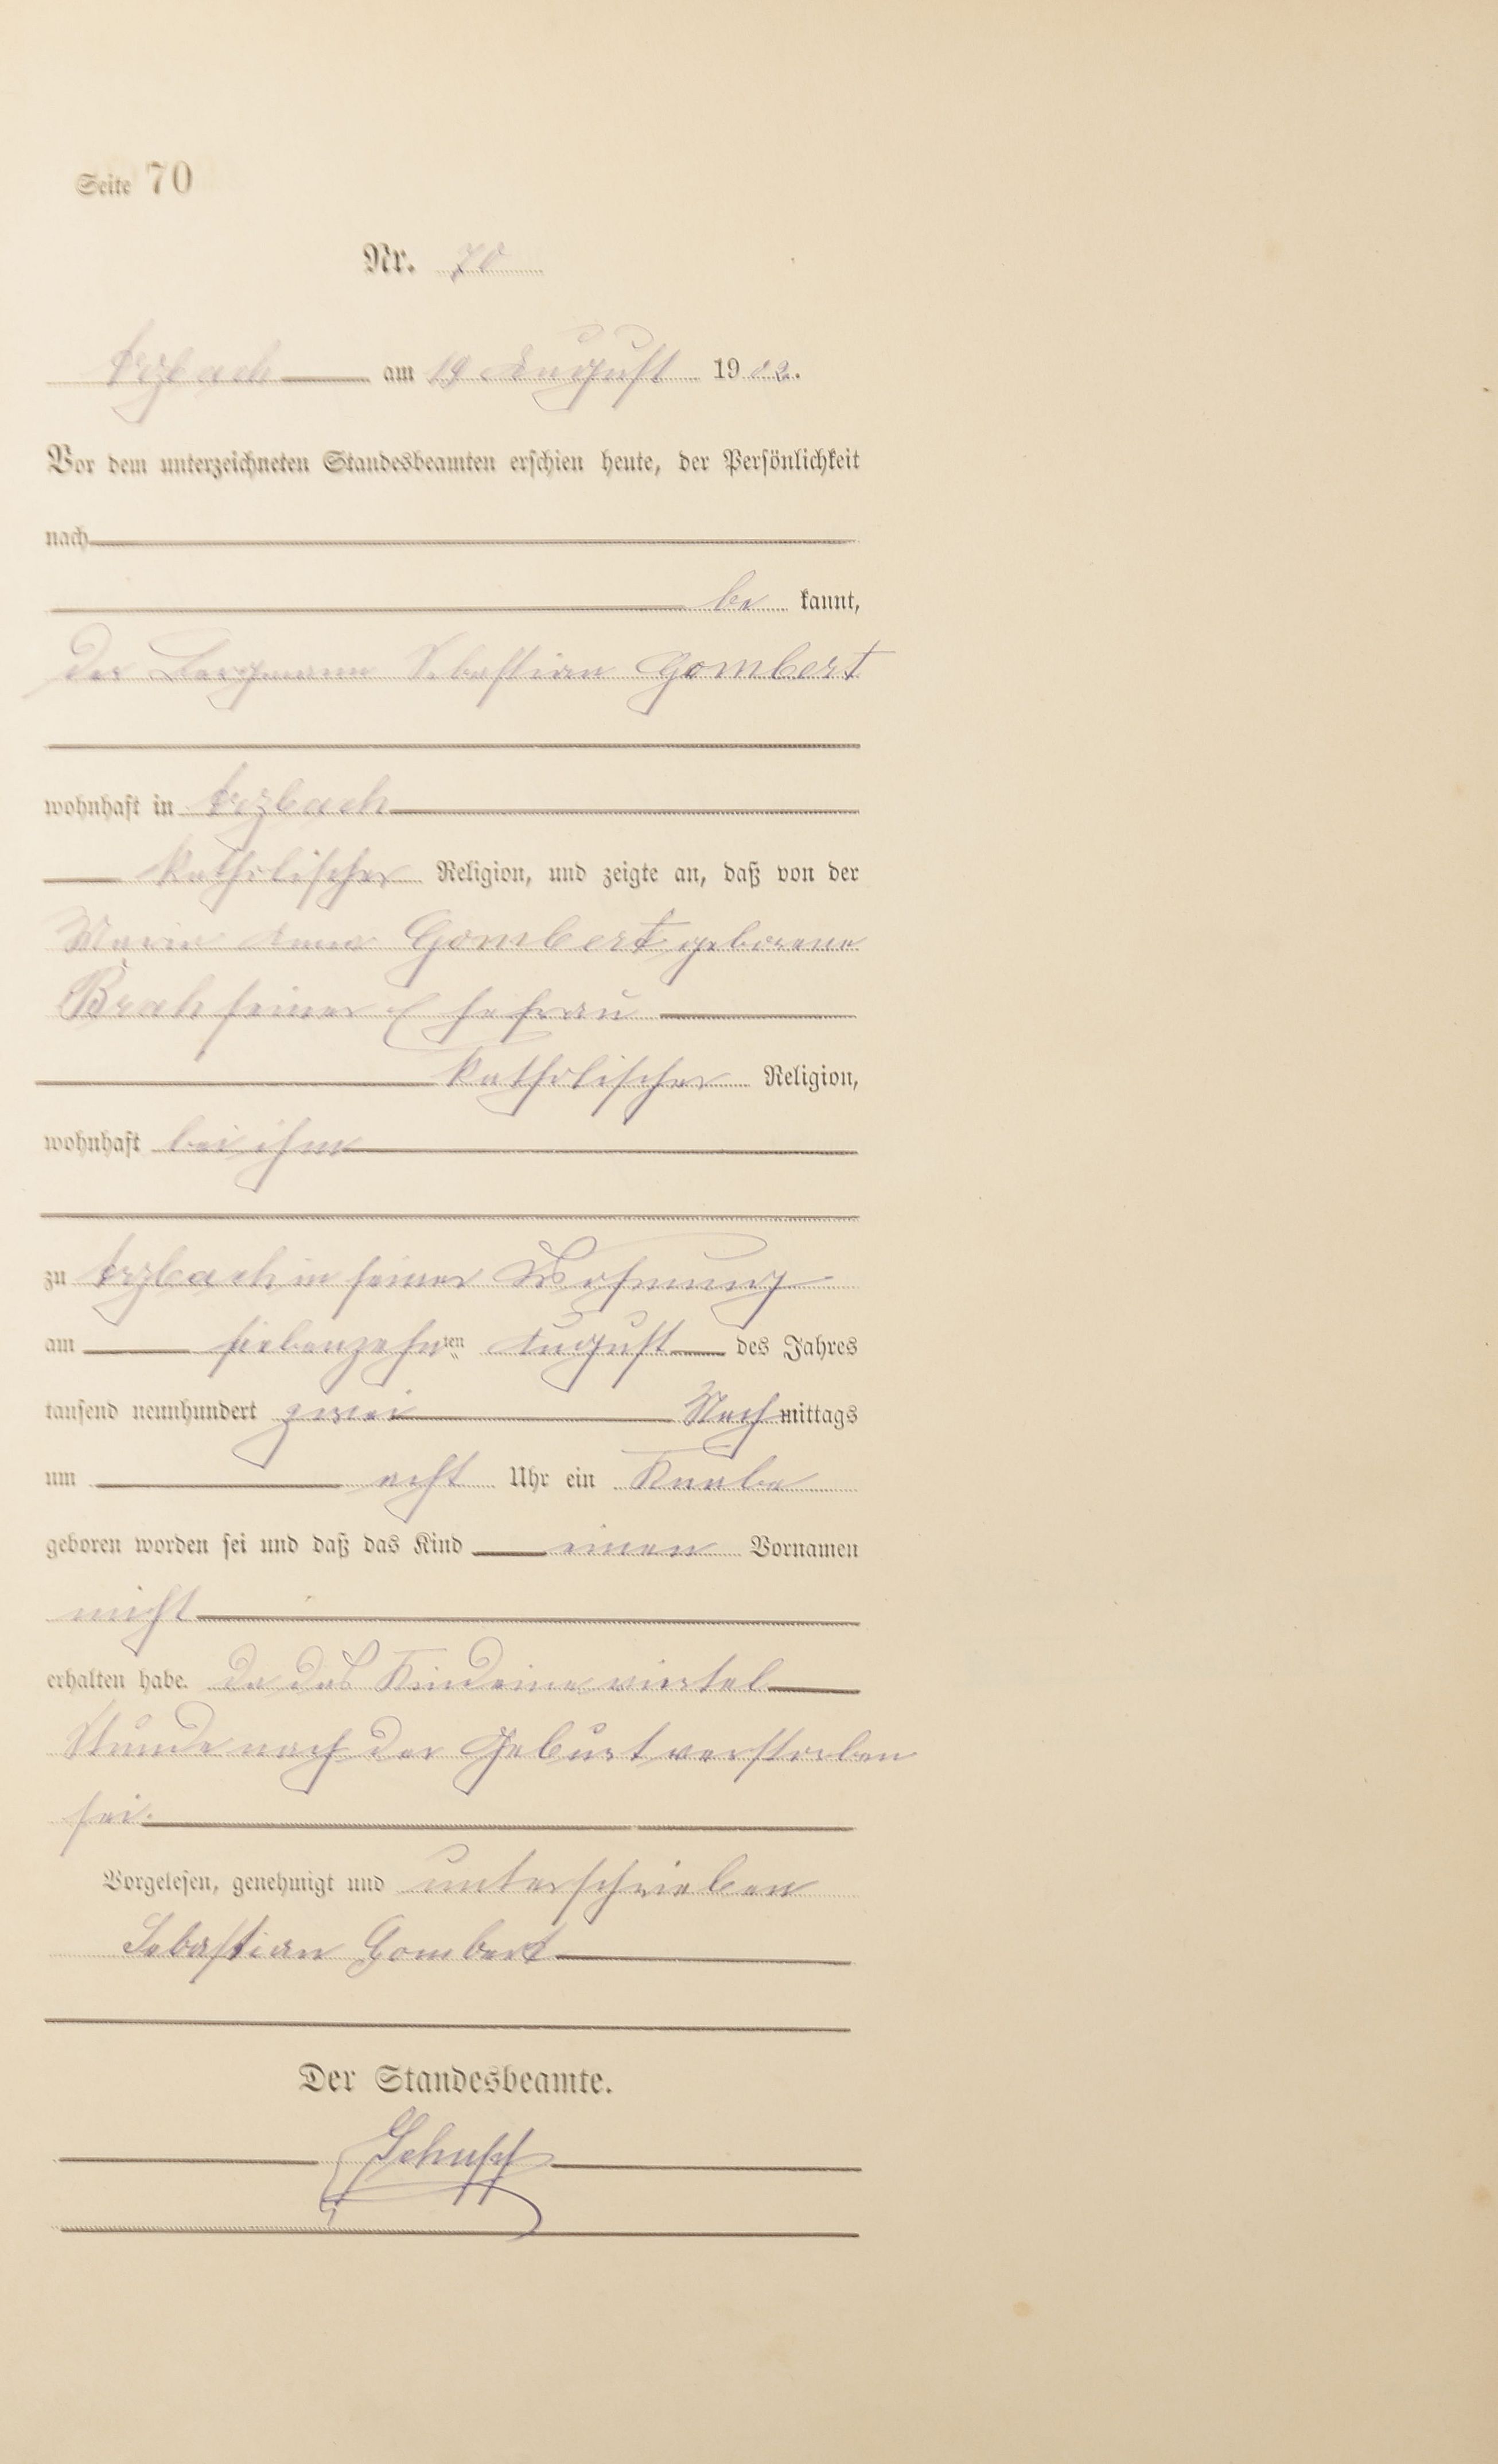 Seite 70
Nr. 70
Arzbach am 19 August 1902.
Vor dem unterzeichneten Standesbeamten erschien heute, der Persönlichkeit
nach
be kannt,
der Bergmann Sebastian Gombert
wohnhaft in Arzbach
katholischer Religion, und zeigte an, daß von der
Maria Anna Gombert geborene
Brah seiner Ehefrau
katholischer Religion,
wohnhaft bei ihm
zu Arzbach in seiner Wohnung
am siebenzehnten August des Jahres
tausend neunhundert zwei Nachmittags
um acht Uhr ein Knabe
geboren worden sei und daß das Kind einen Vornamen
nicht
erhalten habe. da das Kind eine viertel
Stunde nach der Geburt verstorben
sei.
Vorgelesen, genehmigt und unterschrieben
Sebastian Gombert
Der Standesbeamte.
Schupp